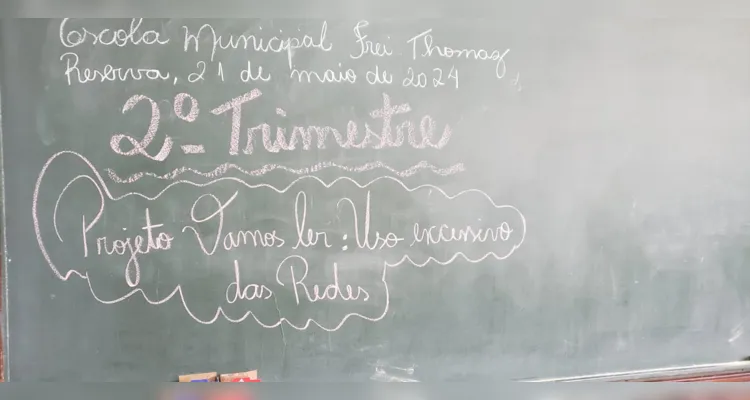 Escola Municipal Frei Thomaz
Reserva, 21 de maio de 2024
2º Trimestre
Projeto Vamos ler: Uso excessivo
das Redes